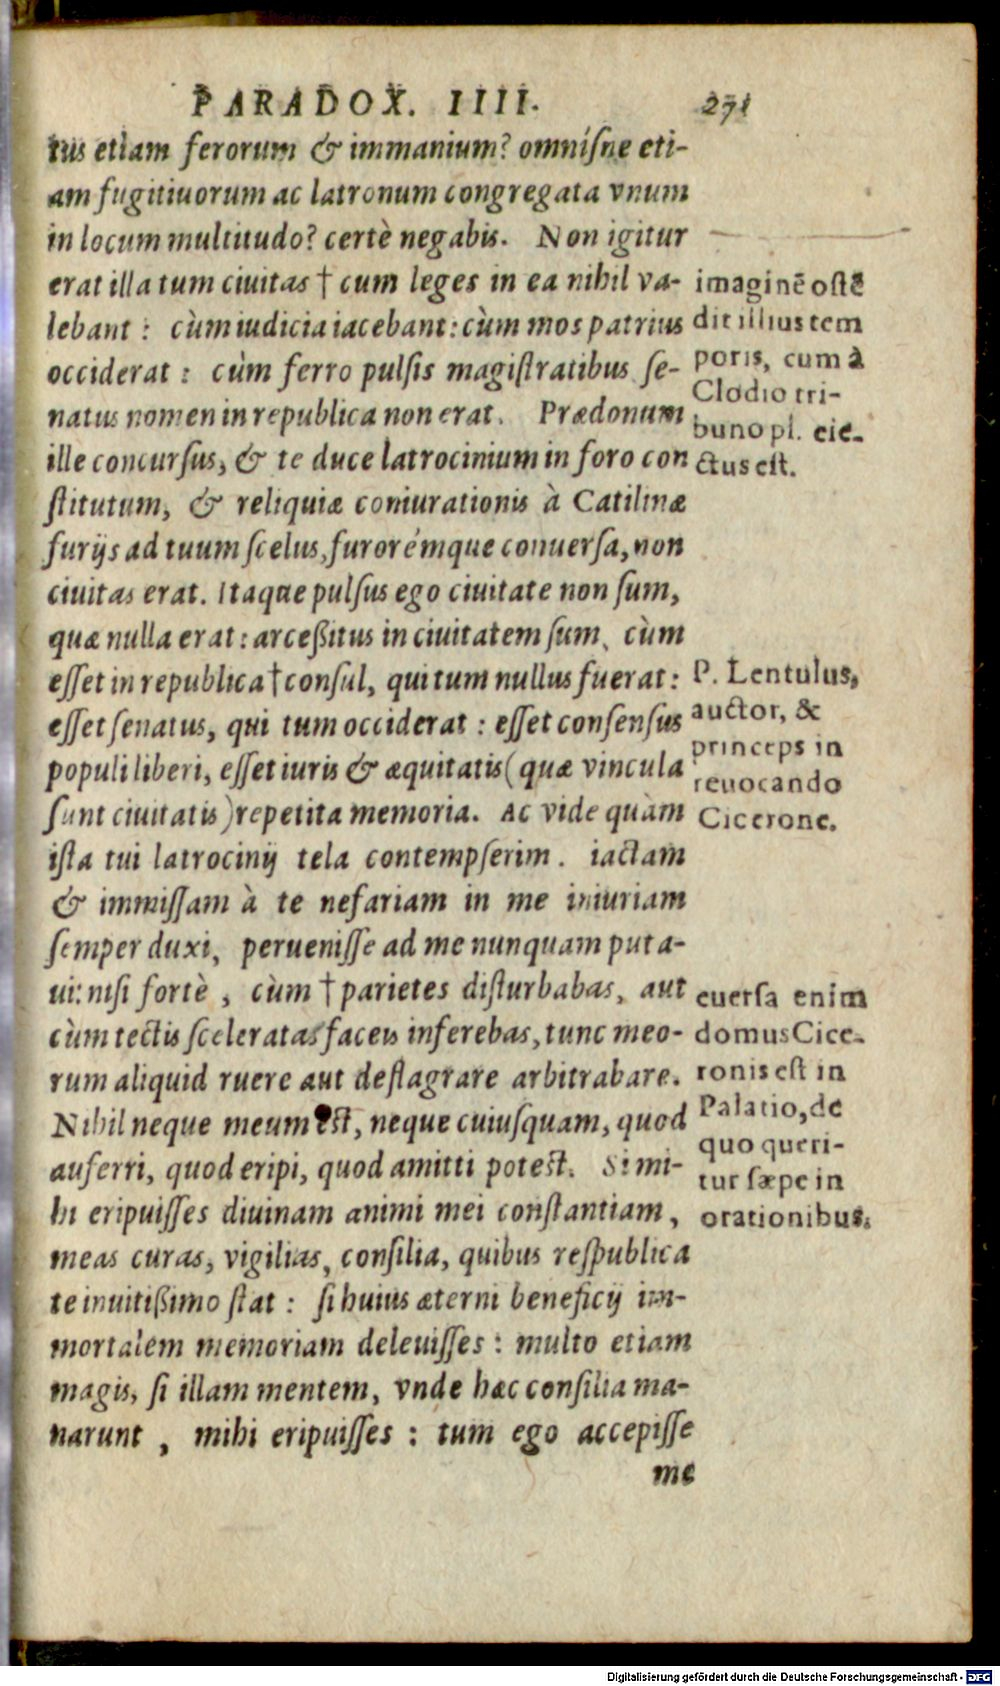 PARADOX. IIII. 271
tus etiam ferorum & immanium? omnísne eti-
am fugitiuorum ac latronum congregata vnum
in locum multitudo? certè negabis. Non igitur
erat illa tum ciuitas † cum leges in ea nihil va-
lebant: cùm iudicia iacebant: cùm mos patrius
occiderat: cùm ferro pulsis magistratibus se-
natus nomen in republica non erat. Prædonum
ille concursus, & te duce latrocinium in foro con
stitutum, & reliquiæ coniurationis à Catilinæ
furijs ad tuum scelus, furorémque conuersa, non
ciuitas erat. Itaque pulsus ego ciuitate non sum,
quæ nulla erat: arceßitus in ciuitatem sum, cùm
esset in republica † consul, qui tum nullus fuerat:
esset senatus, qui tum occiderat: esset consensus
populi liberi, esset iuris & æquitatis (quæ vincula
sunt ciuitatis) repetita memoria. Ac vide quàm
ista tui latrocinij tela contempserim. iactam
& immissam à te nefariam in me iniuriam
semper duxi, peruenisse ad me nunquam puta-
ui: nisi fortè, cùm † parietes disturbabas, aut
cùm tectis sceleratas faceis inferebas, tunc meo-
rum aliquid ruere aut deflagrare arbitrabare.
Nihil neque meum est, neque cuiusquam, quod
auferri, quod eripi, quod amitti potest. Si mi-
hi eripuisses diuinam animi mei constantiam,
meas curas, vigilias, consilia, quibus respublica
te inuitißimo stat: si huius æterni beneficij im-
mortalem memoriam deleuisses: multo etiam
magis, si illam mentem, vnde hæc consilia ma-
narunt, mihi eripuisses: tum ego accepisse
me
imaginē ostē
dit illius tem
poris, cum à
Clodio tri-
buno pl. eie-
ctus est.
P. Lentulus,
auctor, &
princeps in
reuocando
Cicerone.
euersa enim
domus Cice-
ronis est in
Palatio, de
quo queri-
tur sæpe in
orationibus.
Digitalisierung gefördert durch die Deutsche Forschungsgemeinschaft - DFG